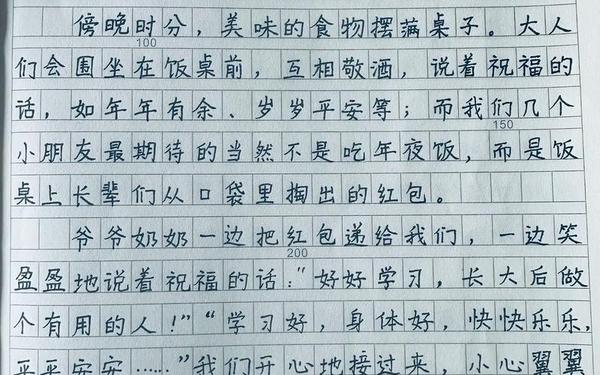 傍晚时分，美味的食物摆满桌子。大人
100
们会围坐在饭桌前，互相敬酒，说着祝福的
话，如年年有余、岁岁平安等；而我们几个
150
小朋友最期待的当然不是吃年夜饭，而是饭
桌上长辈们从口袋里掏出的红包。
爷爷奶奶一边把红包递给我们，一边笑
200
盈盈地说着祝福的话："好好学习，长大后做
个有用的人！"“学习好，身体好，快快乐乐，
平平安安……”我们开心地接过来，小心翼翼